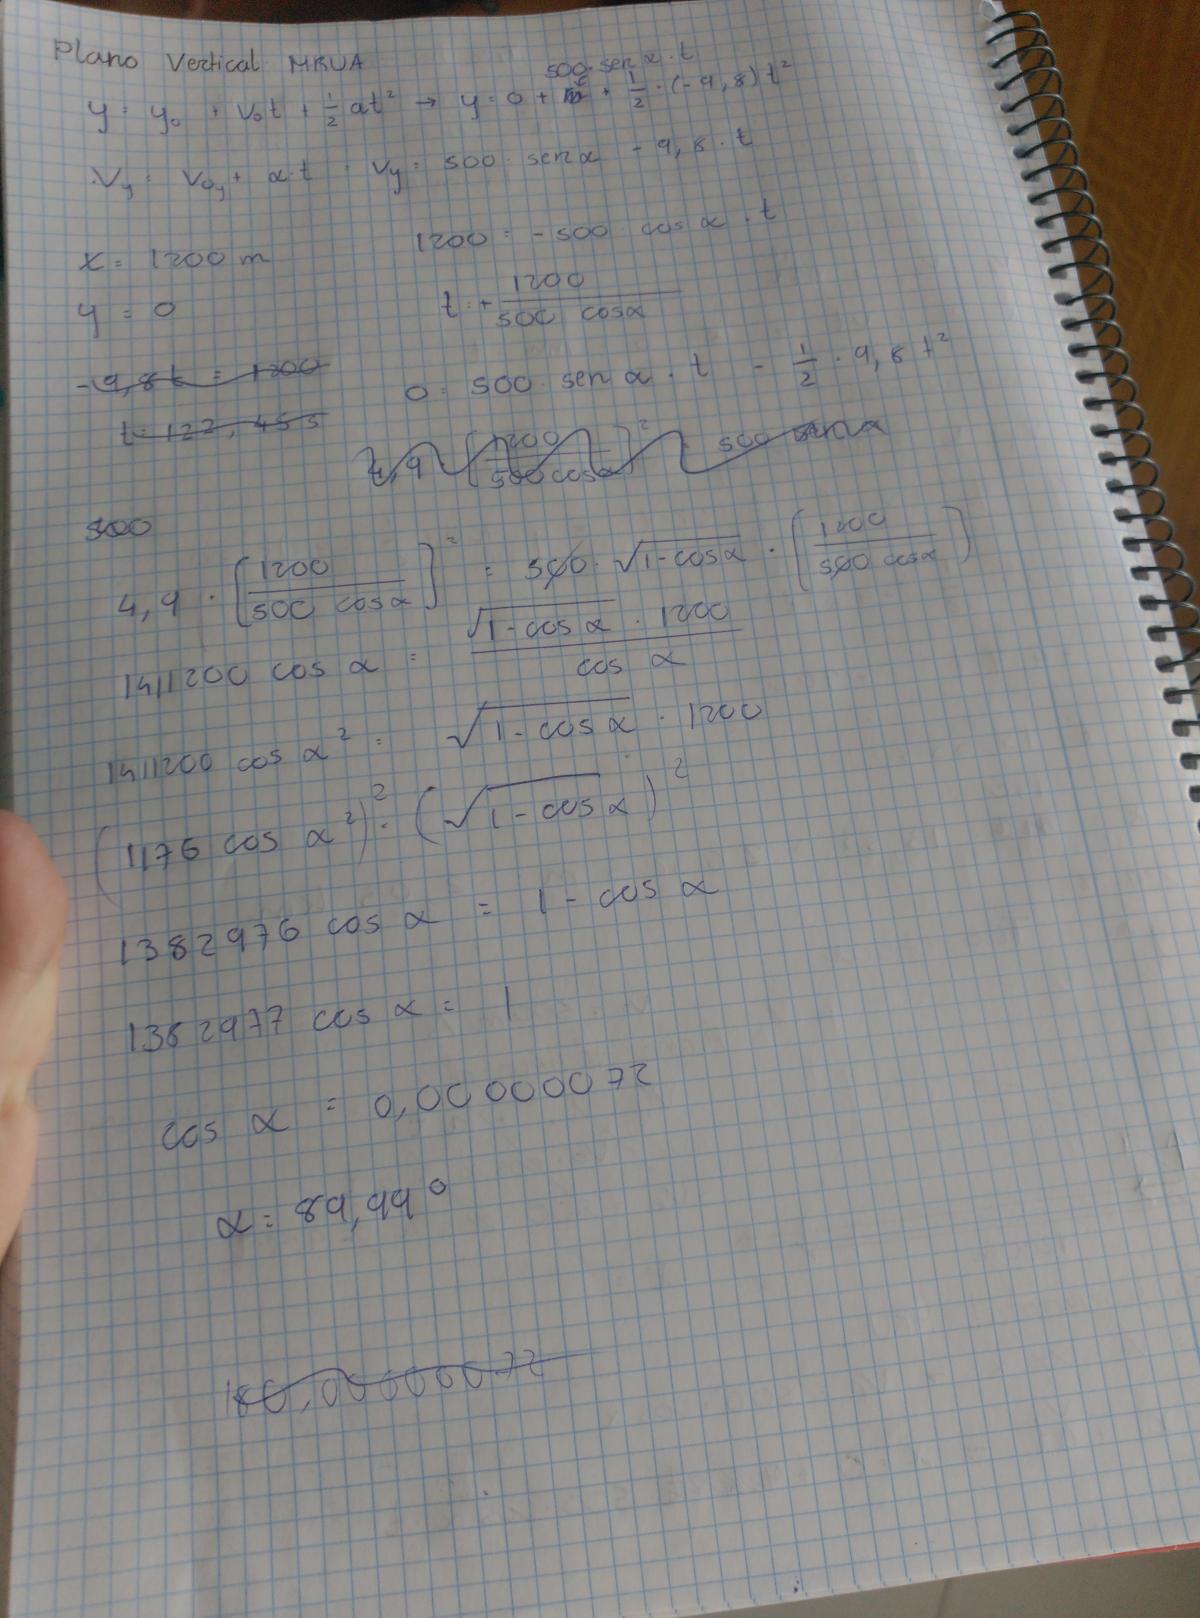 Plano Vertical MRUA
500 · sen α · t
y = y₀ + v₀t + 1/2 at² → y = 0 + + 1/2 · (-9,8) t²
Vy = V₀y + α · t · Vy = 500 · sen α - 9,8 · t
x = 1200 m
1200 = - 500 cos α · t
y = 0
t = + 1200 / 500 cos α
-9,8t = 1200
0 = 500 · sen α · t - 1/2 · 9,8 t²
t = 122,45 s
4,9 [1200 / 500 cos α]² = 500 sen α
500
4,9 · [1200 / 500 cos α]² = 500 · √1-cos α · [1200 / 500 cos α]
1411200 cos α = √1-cos α · 1200 / cos α
1411200 cos α² = √1-cos α · 1200
(1176 cos α²)² = (√1-cos α)²
1382976 cos α = 1 - cos α
1382977 cos α = 1
cos α = 0,00000072
α = 89,99°
180,00000072